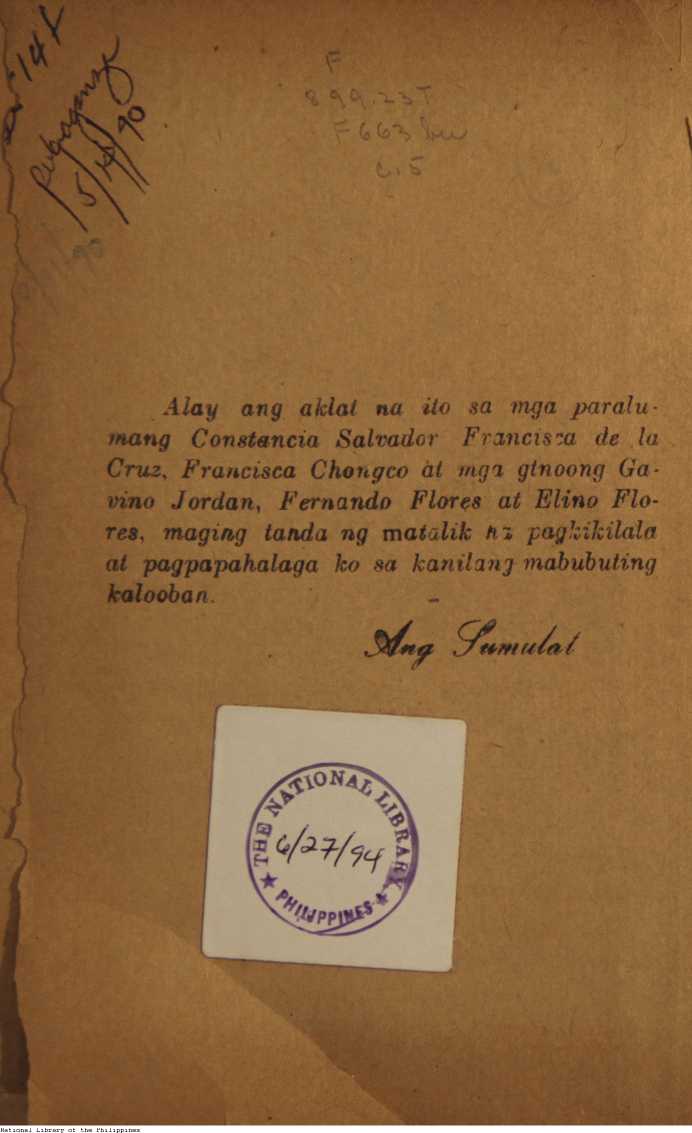 F
899.23T
F663bu
c.5
5/14/90
Alay ang aklat na ito sa mga paralu-
mang Constancia Salvador Francisca de la
Cruz, Francisca Chongco at mga ginoong Ga-
vino Jordan, Fernando Flores at Elino Flo-
res, maging tanda ng matalik na pagkikilala
at pagpapahalaga ko sa kanilang mabubuting
kalooban.
Ang Sumulat
THE NATIONAL LIBRARY
6/27/94
PHILIPPINES
National Library of the Philippines